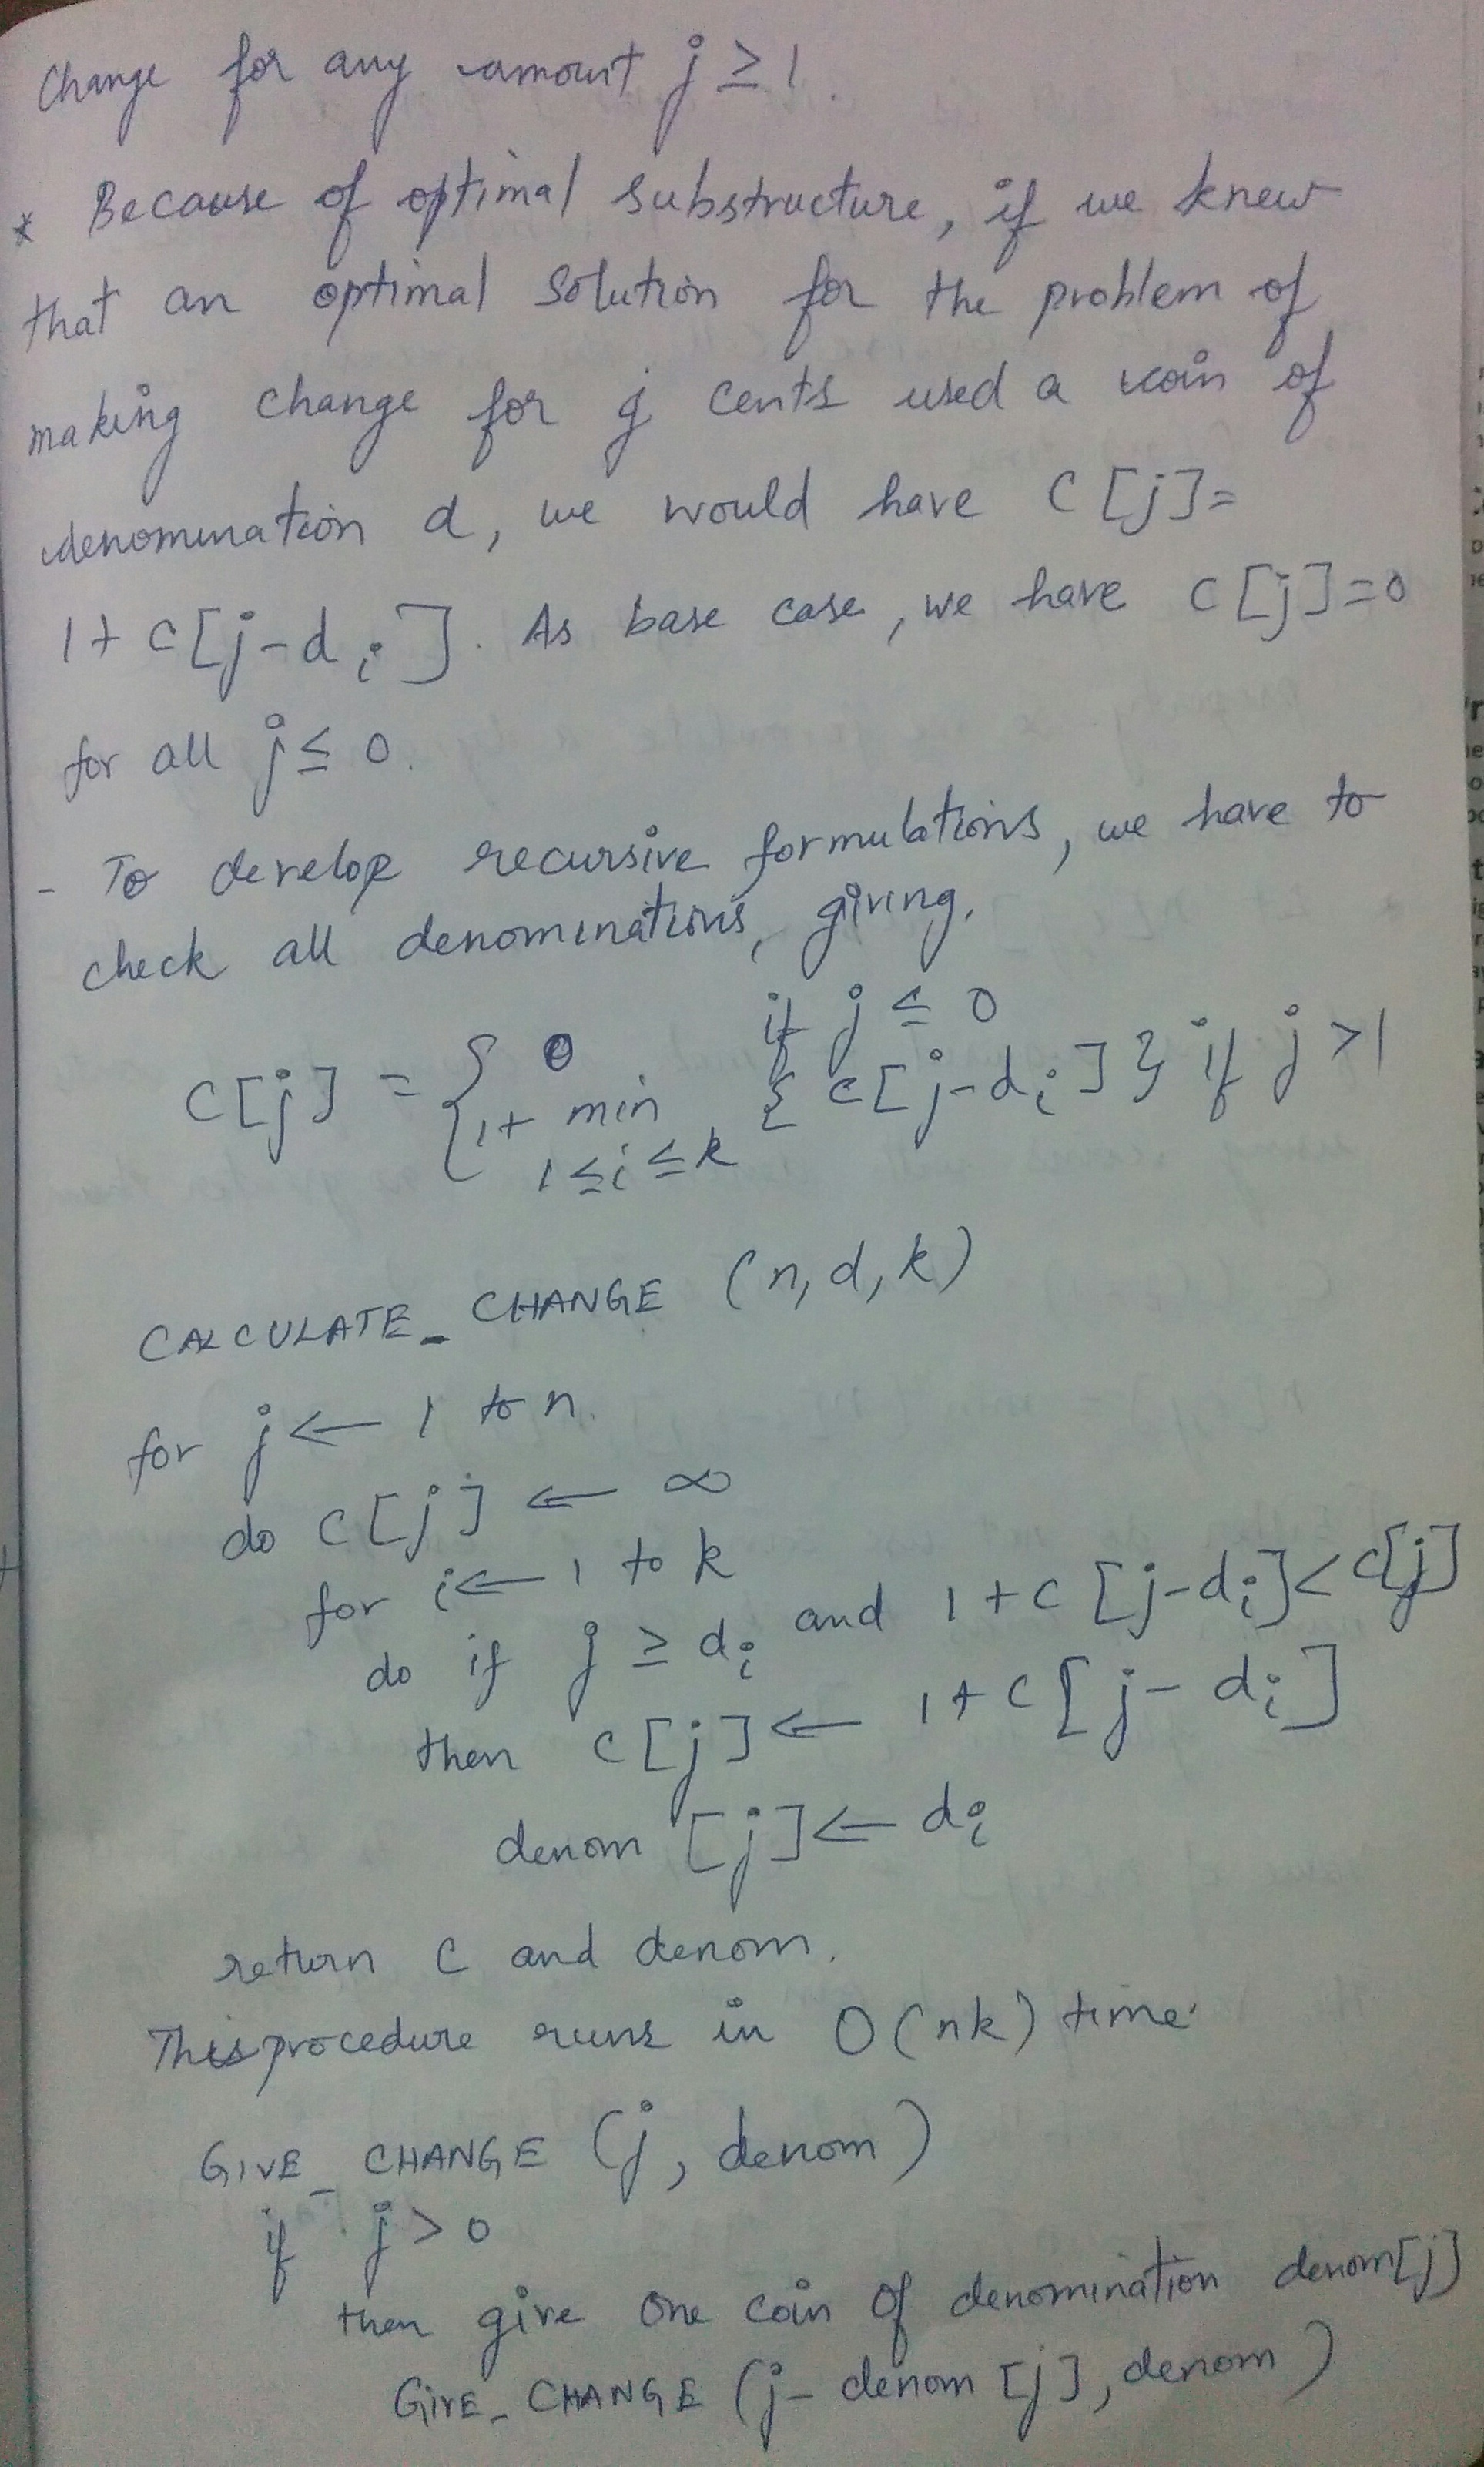 Change for any amount j ≥ 1.
* Because of optimal substructure, if we knew
that an optimal solution for the problem of
making change for j cents used a coin of
denomination d, we would have C[j]=
1+ C[j-d i]. As base case, we have C[j]=0
for all j ≤ 0.
- To develop recursive formulations, we have to
check all denominations, giving,
if j ≤ 0
C[j] = { 0
{ 1+ min { C[j-di] } if j >1
1≤i≤k
CALCULATE_CHANGE (n,d,k)
for j ← 1 to n.
do C[j] ← ∞
for i ← 1 to k
do if j ≥ di and 1+C [j-di]< C[j]
then C[j] ← 1+C[j-di]
denom [j] ← di
return C and denom.
This procedure runs in O(nk) time.
GIVE_CHANGE (j, denom)
if j > 0
then give one coin of denomination denom[j]
GIVE_CHANGE (j- denom [j], denom)